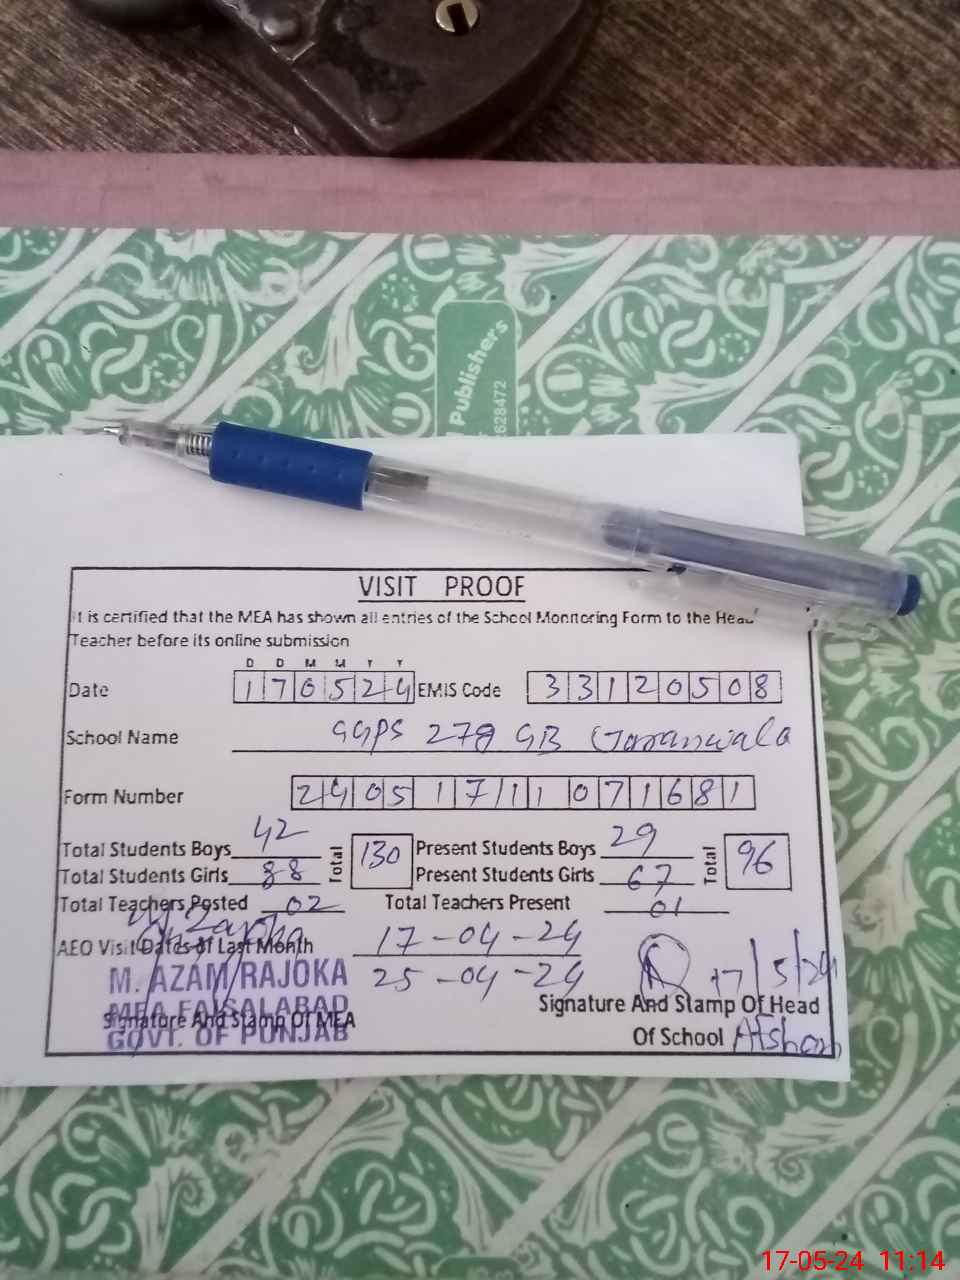 Publishers
2628472
VISIT PROOF
It is certified that the MEA has shown all entries of the School Monitoring Form to the Head
Teacher before its online submission
D D M M Y Y
Date 170524 EMIS Code 33120508
School Name GGPS 278 GB Jaranwala
Form Number 24051711071681
Total Students Boys 42 Total 130 Present Students Boys 29 Total 96
Total Students Girls 88 Present Students Girls 67
Total Teachers Posted 02 Total Teachers Present 01
AEO Visit Dates of Last Month 17-04-24
25-04-24
M. AZAM RAJOKA
MEA FAISALABAD
GOVT. OF PUNJAB
Signature And Stamp Of MEA
17/5/24
Signature And Stamp Of Head
Of School
17-05-24 11:14